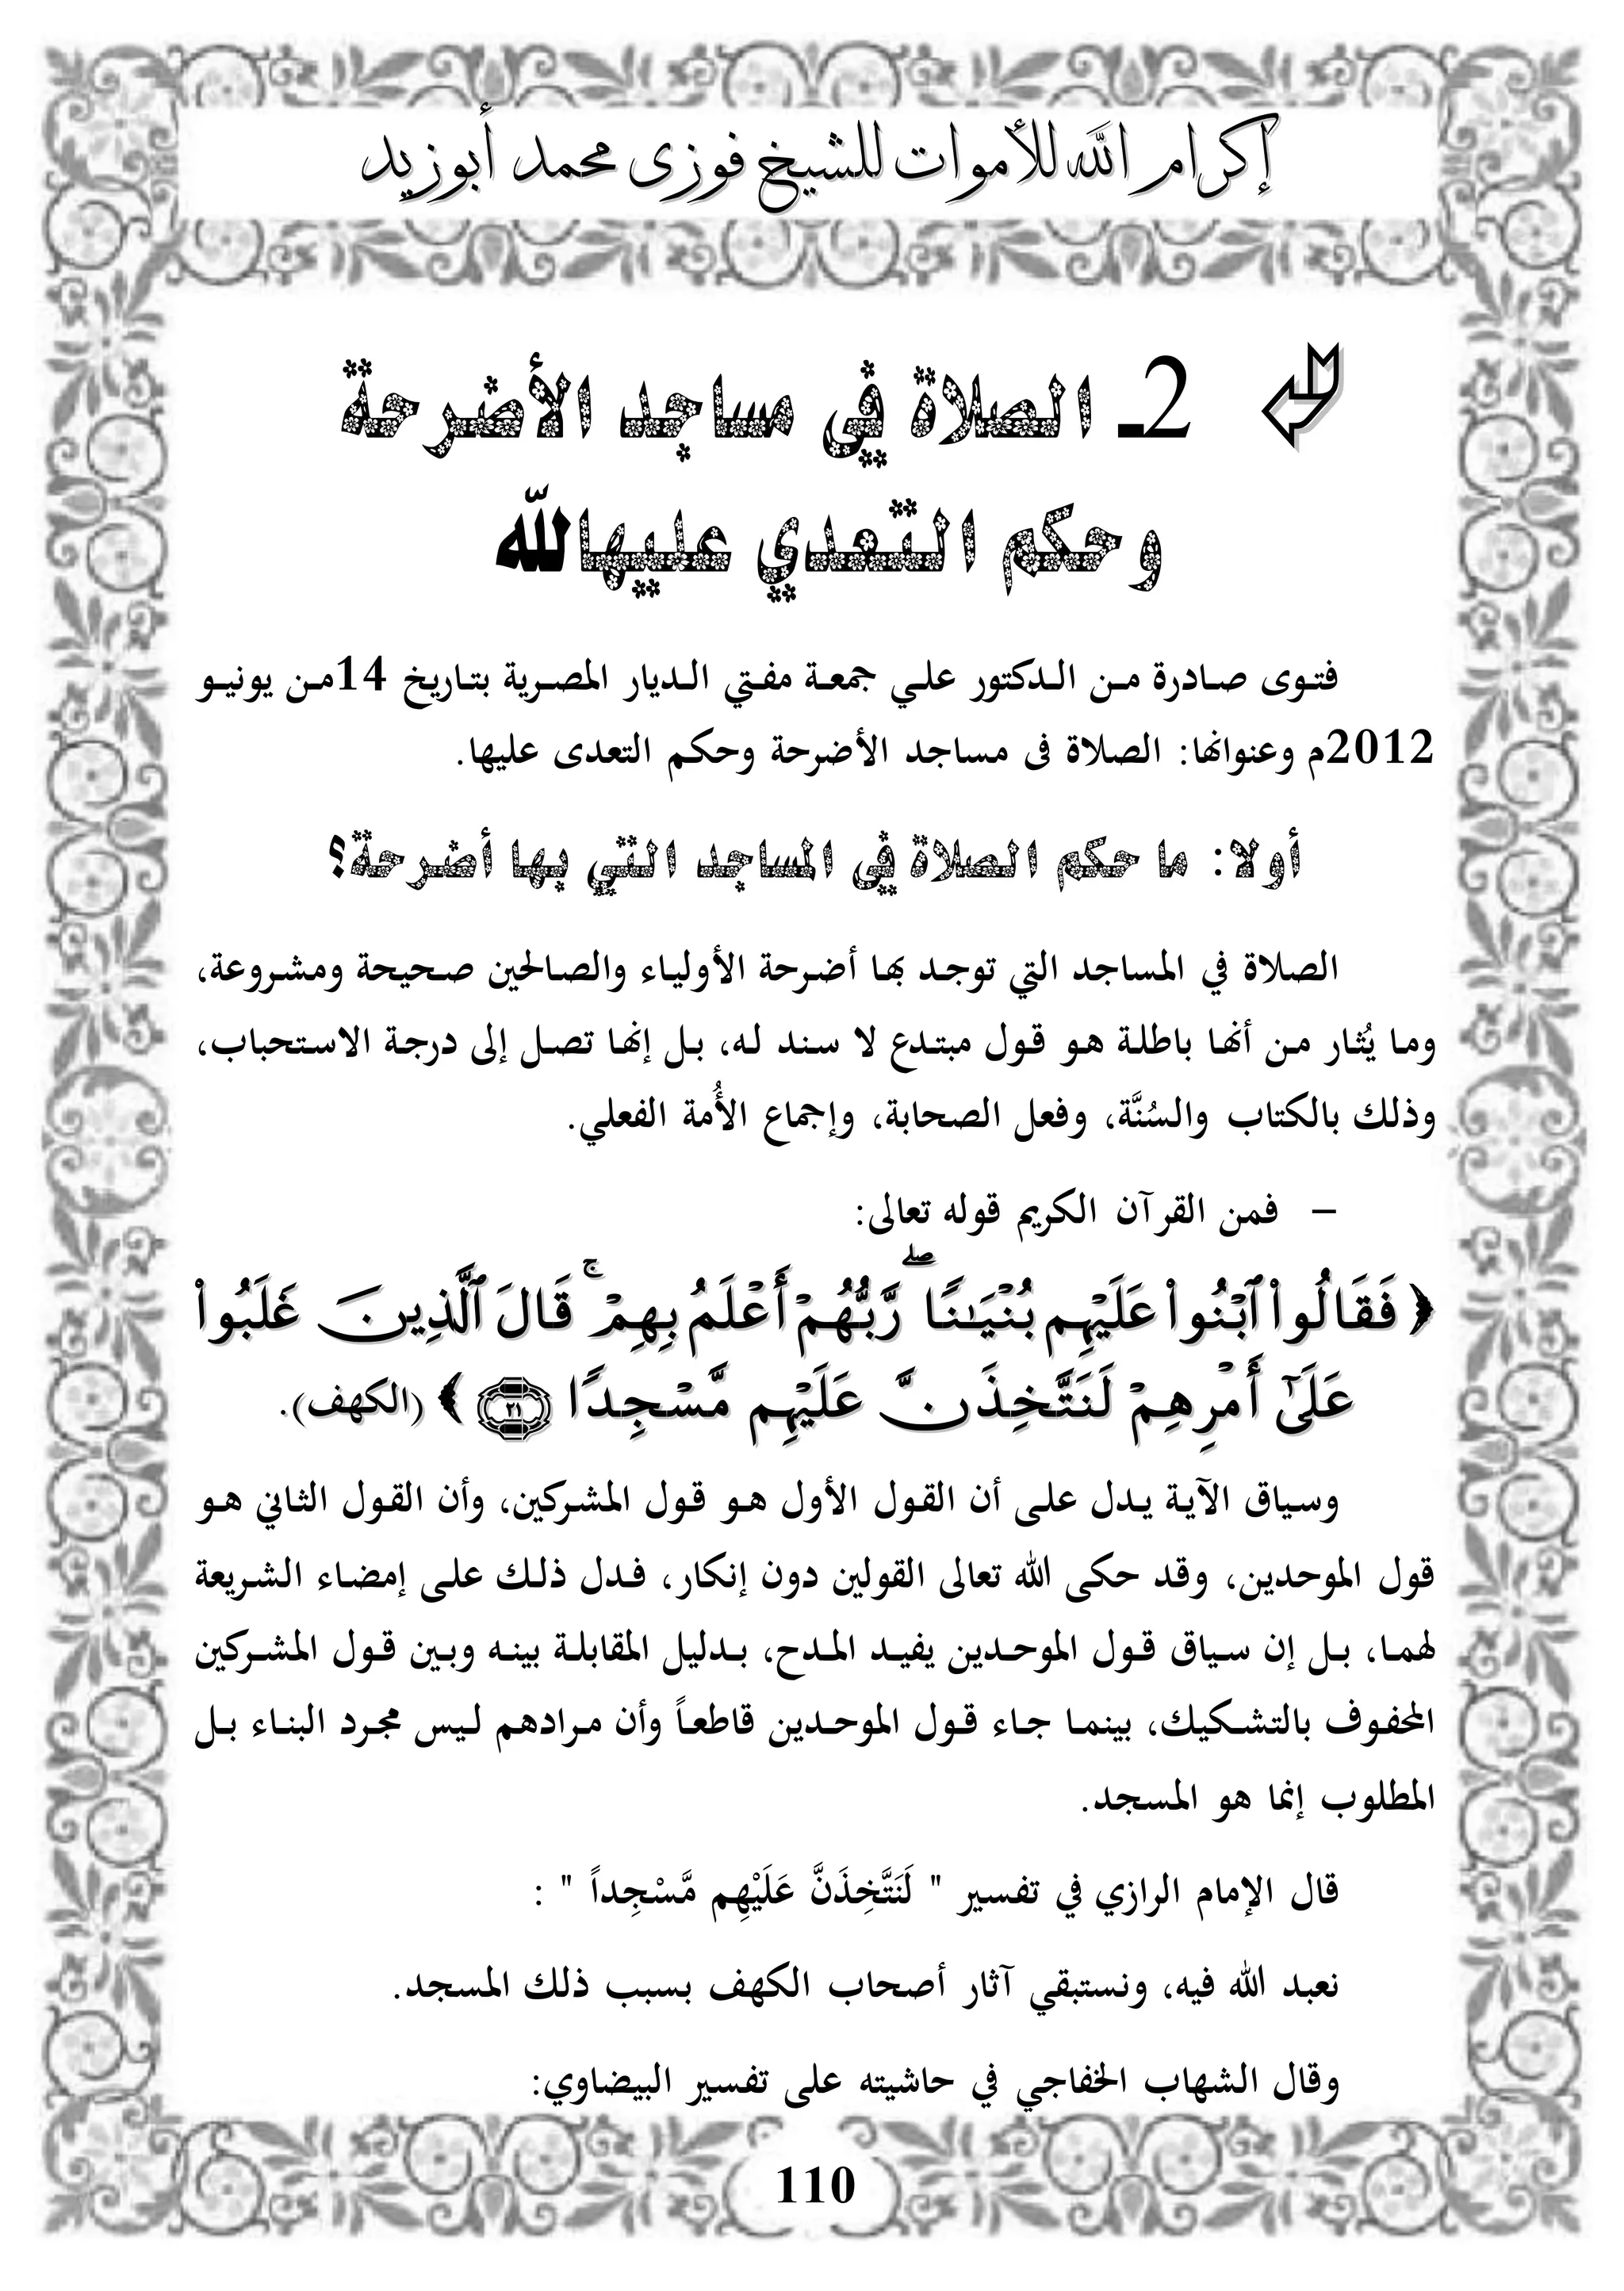 إكرام الله للأموات للشيخ فوزى محمد أبوزيد
2ـ الصلاة في مساجد الأضرحة
وحكم التعدي عليهالله
فتوى صادرة من الدكتور علي جمعة مفتي الديار المصرية بتاريخ 14من يونيو
2012م وعنوانها: الصلاة فى مساجد الأضرحة وحكم التعدى عليها.
أولا: ما حكم الصلاة في المساجد التي بها أضرحة؟
الصلاة في المساجد التي توجد بها أضرحة الأولياء والصالحين صحيحة ومشروعة،
وما يُثار من أنها باطلة هو قول مبتدع لا سند له، بل إنها تصل إلى درجة الاستحباب،
وذلك بالكتاب والسُنَّة، وفعل الصحابة، وإجماع الأُمة الفعلي.
– فمن القرآن الكريم قوله تعالى:
﴿ فَقَالُوا۟ ٱبْنُوا۟ عَلَيْهِم بُنْيَـٰنًا ۖ رَّبُّهُمْ أَعْلَمُ بِهِمْ ۚ قَالَ ٱلَّذِينَ غَلَبُوا۟
عَلَىٰٓ أَمْرِهِمْ لَنَتَّخِذَنَّ عَلَيْهِم مَّسْجِدًا ٢١ ﴾ (الكهف).
وسياق الآية يدل على أن القول الأول هو قول المشركين، وأن القول الثاني هو
قول الموحدين، وقد حكى الله تعالى القولين دون إنكار، فدل ذلك على إمضاء الشريعة
لهما، بل إن سياق قول الموحدين يفيد المدح، بدليل المقابلة بينه وبين قول المشركين
المحفوف بالتشكيك، بينما جاء قول الموحدين قاطعاً وأن مرادهم ليس مجرد البناء بل
المطلوب إنما هو المسجد.
قال الإمام الرازي في تفسير " لَنَتَّخِذَنَّ عَلَيْهِم مَّسْجِداً " :
نعبد الله فيه، ونستبقي آثار أصحاب الكهف بسبب ذلك المسجد.
وقال الشهاب الخفاجي في حاشيته على تفسير البيضاوي:
110